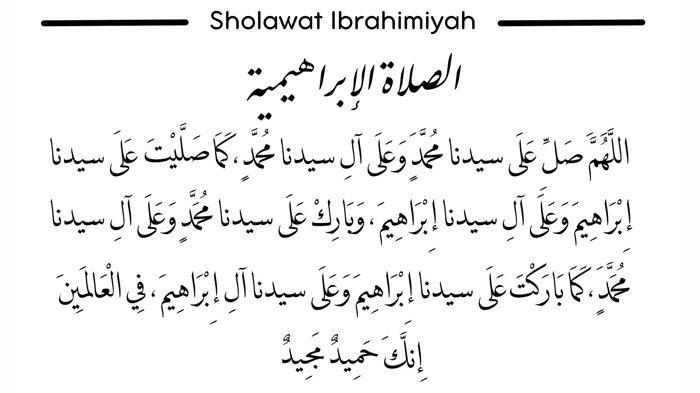 Sholawat Ibrahimiyah
الصلاة الإبراهيمية
اللَّهُمَّ صَلِّ عَلَى سيدنا مُحمَّدٍ وَعَلَى آلِ سيدنا مُحمَّدٍ، كَمَا صَلَّيْتَ عَلَى سيدنا
إِبْرَاهِيمَ وَعَلَى آلِ سيدنا إِبْرَاهِيمَ، وَبَارِكْ عَلَى سيدنا مُحَمَّدٍ وَعَلَى آلِ سيدنا
مُحَمَّدٍ، كَمَا بَارَكْتَ عَلَى سيدنا إِبْرَاهِيمَ وَعَلَى سيدنا آلِ إِبْرَاهِيمَ، فِي الْعَالَمِينَ
إِنَّكَ حَمِيدٌ مَجِيدٌ